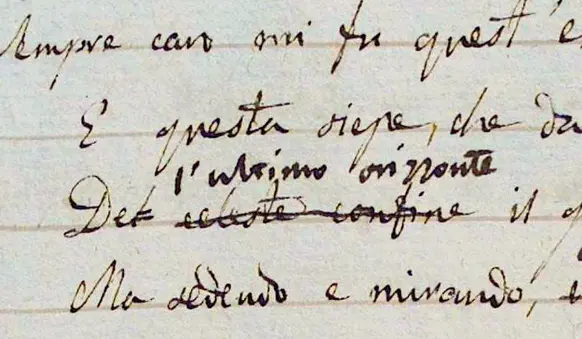 Sempre caro mi fu quest'e
E questa siepe, che da
l'ultimo orizzonte
Del celeste confine il g
Ma sedendo e mirando,